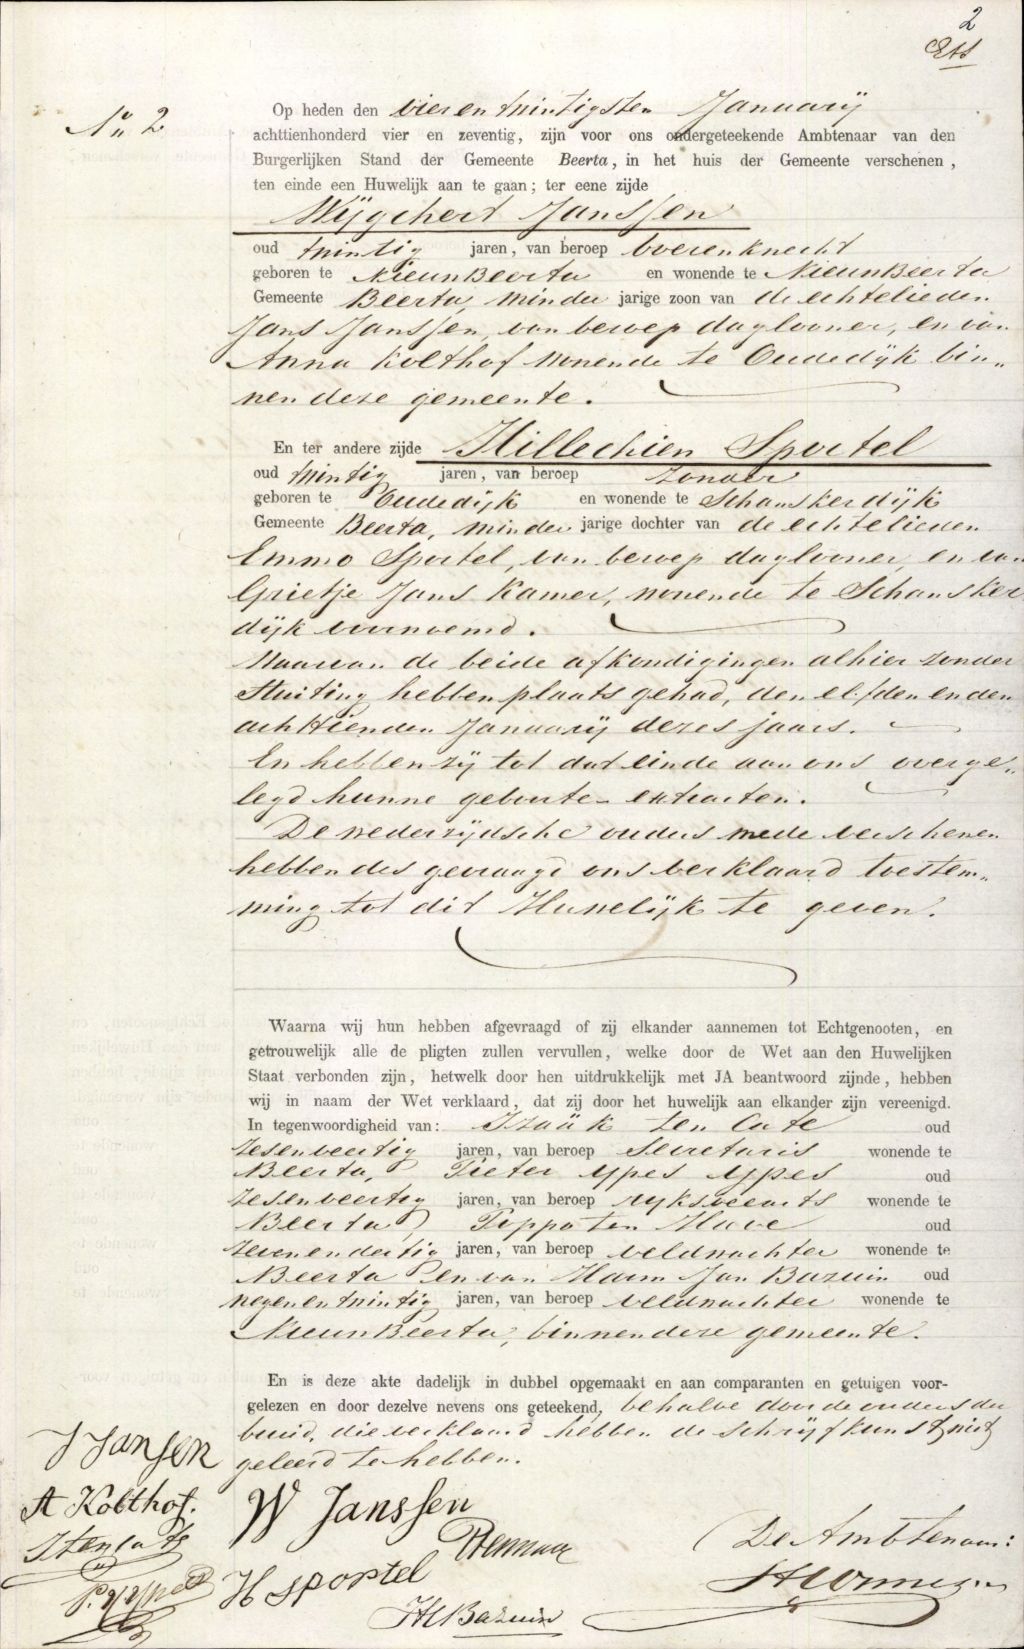 2
No 2
Op heden den vier en twintigsten Januarij
achttienhonderd vier en zeventig, zijn voor ons ondergeteekende Ambtenaar van den
Burgerlijken Stand der Gemeente Beerta, in het huis der Gemeente verschenen,
ten einde een Huwelijk aan te gaan; ter eene zijde
Wijgchert Janssen
oud twintig jaren, van beroep boerenknecht
geboren te NieuwBeerta en wonende te NieuwBeerta
Gemeente Beerta, minder jarige zoon van de echtelieden
Jans Janssen, van beroep daglooner, en van
Anna Kolthof wonende te Oudedijk bin„
nen deze gemeente.
En ter andere zijde Hillechien Sportel
oud twintig jaren, van beroep zonder
geboren te Oudedijk en wonende te Schanskerdijk
Gemeente Beerta, minder jarige dochter van de echtelieden
Emmo Sportel, van beroep daglooner, en van
Grietje Jans Kamer, wonende te Schansker
dijk voornoemd.
Waarvan de beide afkondigingen alhier zonder
stuiting hebben plaats gehad, den elfden en den
achttienden Januarij dezes jaars.
En hebben zij tot dat einde aan ons overge„
legd hunne geboorte-extracten.
De wederzijdsche ouders mede verschenen
hebben des gevraagd ons verklaard toestem„
ming tot dit Huwelijk te geven.
Waarna wij hun hebben afgevraagd of zij elkander aannemen tot Echtgenooten, en
getrouwelijk alle de pligten zullen vervullen, welke door de Wet aan den Huwelijken
Staat verbonden zijn, hetwelk door hen uitdrukkelijk met JA beantwoord zijnde, hebben
wij in naam der Wet verklaard, dat zij door het huwelijk aan elkander zijn vereenigd.
In tegenwoordigheid van: Izaäk ten Cate oud
zesenveertig jaren, van beroep Secretaris wonende te
Beerta, Pieter Ypes Ypes oud
zesenveertig jaren, van beroep rijksveearts wonende te
Beerta, Poppo ten Have oud
zevenendertig jaren, van beroep veldwachter wonende te
Beerta en van Harm Jan Bazuin oud
negenentwintig jaren, van beroep veldwachter wonende te
NieuwBeerta, binnen deze gemeente.
En is deze akte dadelijk in dubbel opgemaakt en aan comparanten en getuigen voor-
gelezen en door dezelve nevens ons geteekend, behalve door de ouders der
bruid, die verklaard hebben de schrijfkunst niet
geleerd te hebben.
J Jansen
A Kolthof.
W Janssen
De Ambtenaar:
H Sportel
HJ Bazuin